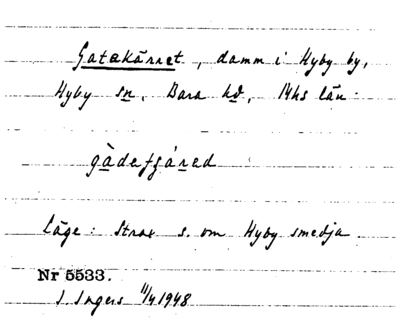 Gatekärret, damm i Hyby by,
Hyby sn. Bara hd, Mhs län.
gàdefɡáred
Läge: Strax s. om Hyby smedja
Nr 5533.
I. Ingers 11/4 1948